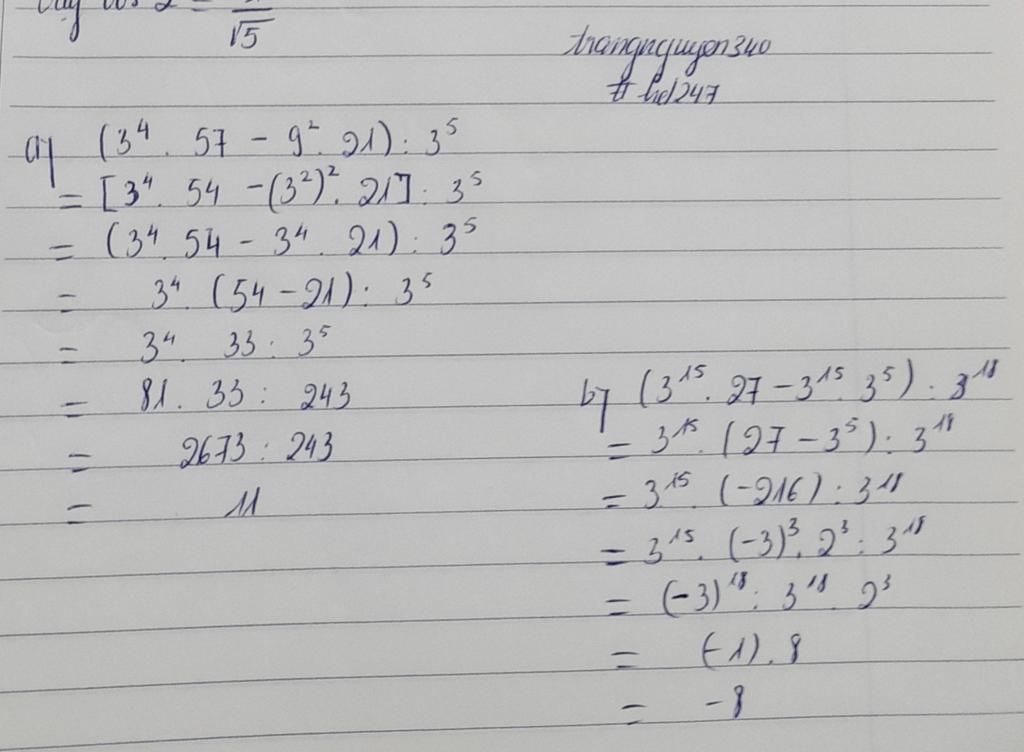 √5
trangnguyen340
# hd247
a) (3⁴. 57 - 9². 21) : 3⁵
= [3⁴. 54 - (3²)². 21] : 3⁵
= (3⁴. 54 - 3⁴. 21) : 3⁵
= 3⁴. (54 - 21) : 3⁵
= 3⁴. 33 : 3⁵
= 81. 33 : 243
= 2673 : 243
= 11
b) (3¹⁵. 27 - 3¹⁵. 3⁵) : 3¹⁸
= 3¹⁵. (27 - 3⁵) : 3¹⁸
= 3¹⁵. (-216) : 3¹⁸
= 3¹⁵. (-3)³. 2³ : 3¹⁸
= (-3)¹⁸ : 3¹⁸. 2³
= (-1). 8
= -8